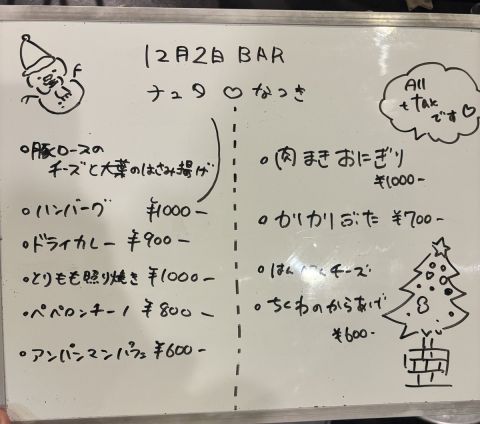 12月2日 BAR
チュロ♡なつき
All
t tax
です♡
・豚ロースの
チーズと大葉のはさみ揚げ
・ハンバーグ ¥1000-
・ドライカレー ¥900-
・とりもも照り焼き ¥1000-
・ペペロンチーノ ¥800-
・アンパンマンパフェ ¥600-
・肉まきおにぎり
¥1000-
・カリカリぶた ¥700-
・はん チーズ
・ちくわのからあげ
¥600-